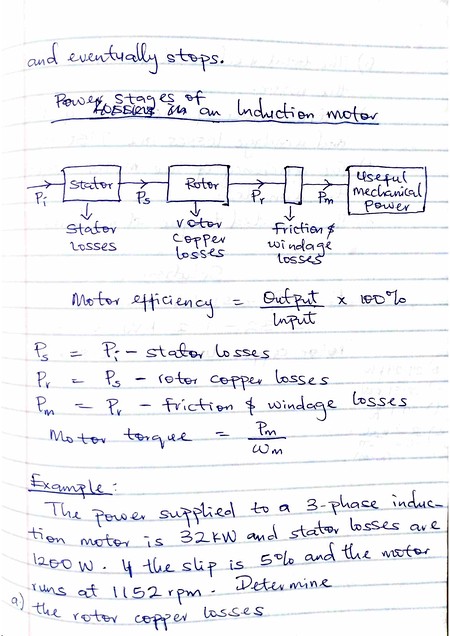 and eventually stops.
Power stages of an Induction motor
Pi Stator Ps Rotor Pr Pm Useful mechanical power
Stator losses
rotor copper losses
Friction & windage losses
Motor efficiency = Output / Input x 100%
Ps = Pi - stator losses
Pr = Ps - rotor copper losses
Pm = Pr - friction & windage losses
Motor torque = Pm / ωm
Example:
The power supplied to a 3-phase induc-
tion motor is 32kW and stator losses are
1200W. If the slip is 5% and the motor
runs at 1152rpm. Determine
a) the rotor copper losses